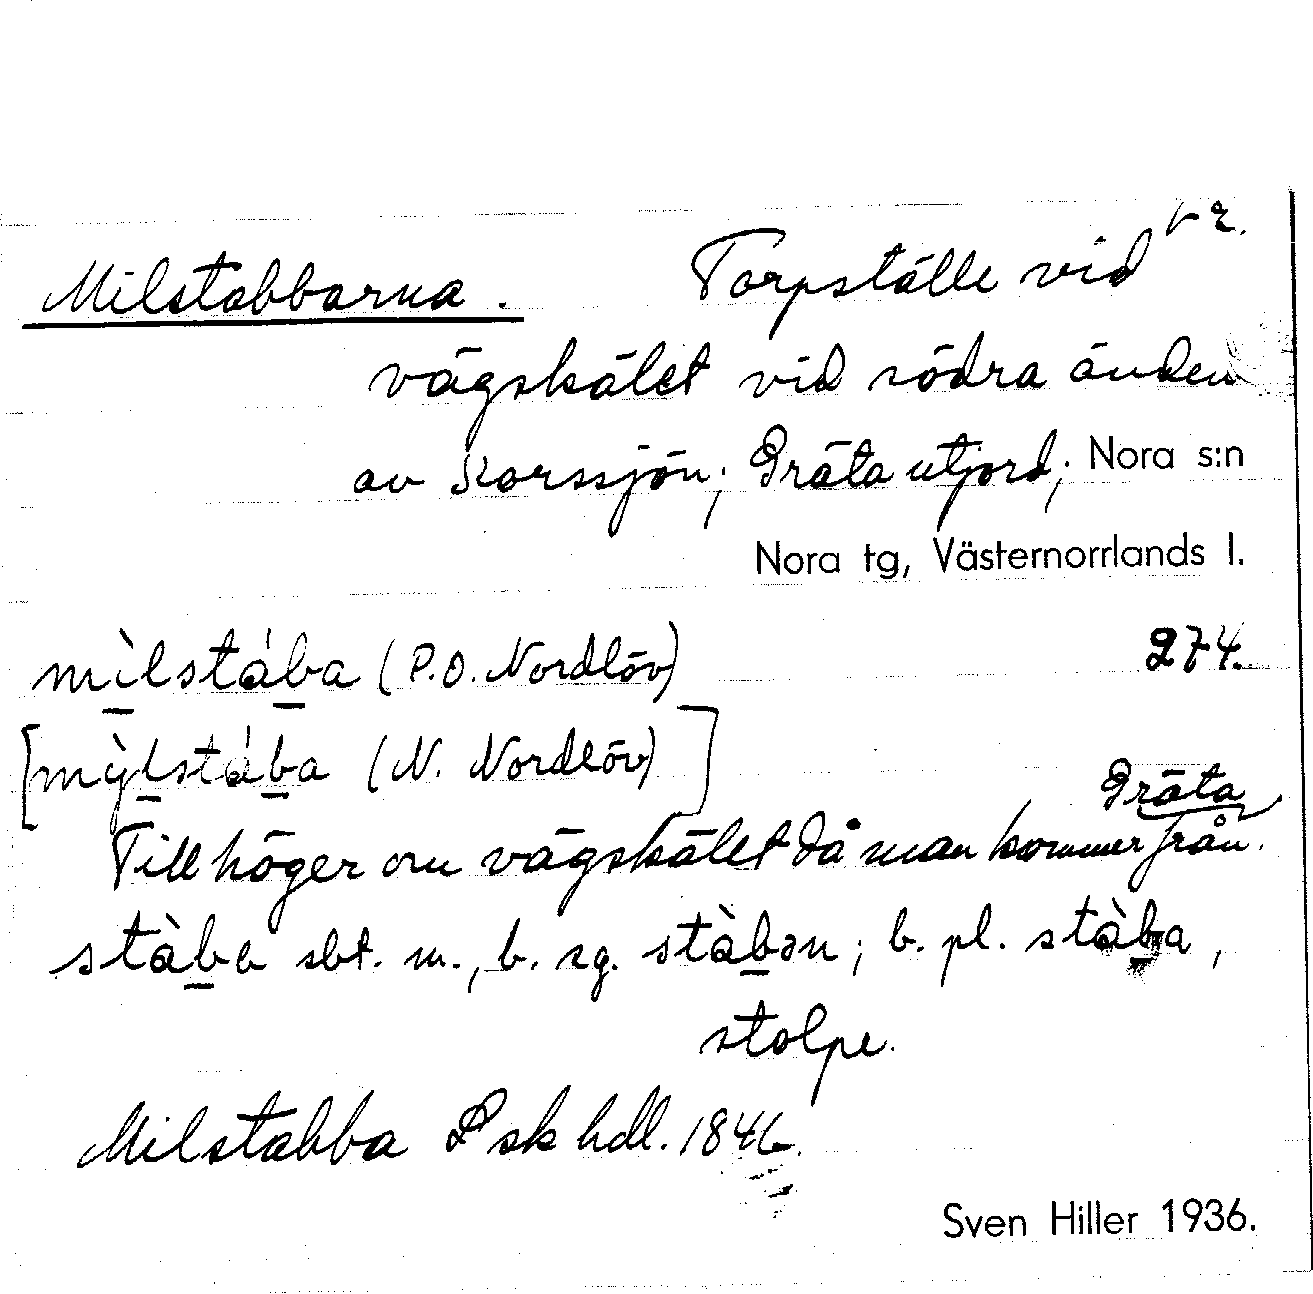 Milstabbarna. Torpställe vid
vägskälet vid södra änden
av Korssjön; Gräta utjord; Nora s:n
Nora tg, Västernorrlands l.
mìlstába (P.O. Nordlöv) 274.
[mỳlstába (N. Nordlöv)]
Gräta
Till höger om vägskälet då man kommer från.
stàbə sbt. m., b. sg. stàbən; b. pl. stàba,
stolpe.
Milstabba Lsk hdl. 1846.
Sven Hiller 1936.